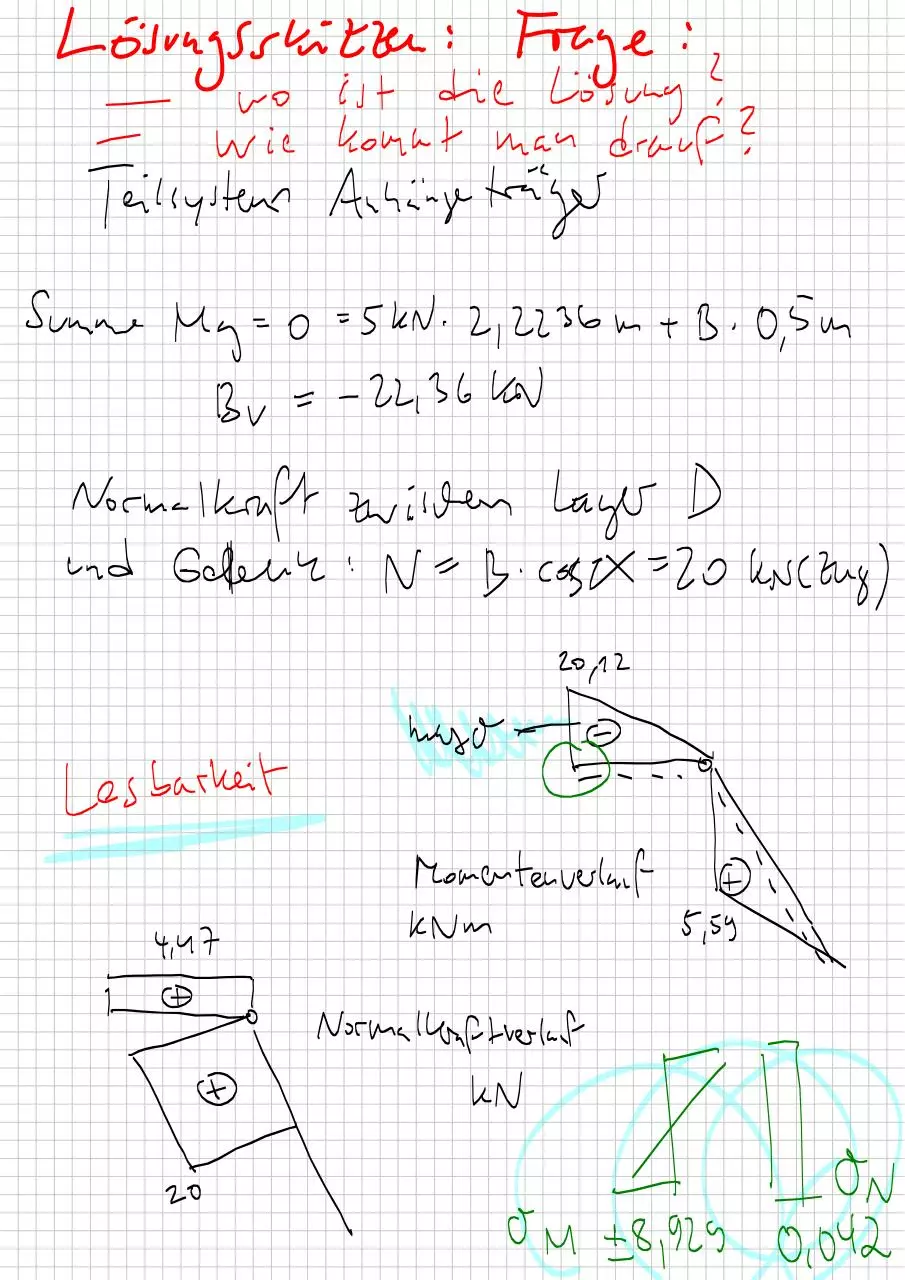 Lösungsskizzen: Frage:
— wo ist die Lösung?
— wie kommt man drauf?
Teilsystem Anhängeträger
Summe Mg = 0 = 5 kN · 2,2236 m + B · 0,5 m
Bv = -22,36 kN
Normalkraft zwischen Lager D
und Gelenk: N = B · cos α = 20 kN (Zug)
20,12
max σ
Lesbarkeit
Momentenverlauf
kNm
5,59
4,47
Normalkraftverlauf
kN
20
σM ±8,929 0,042 σN